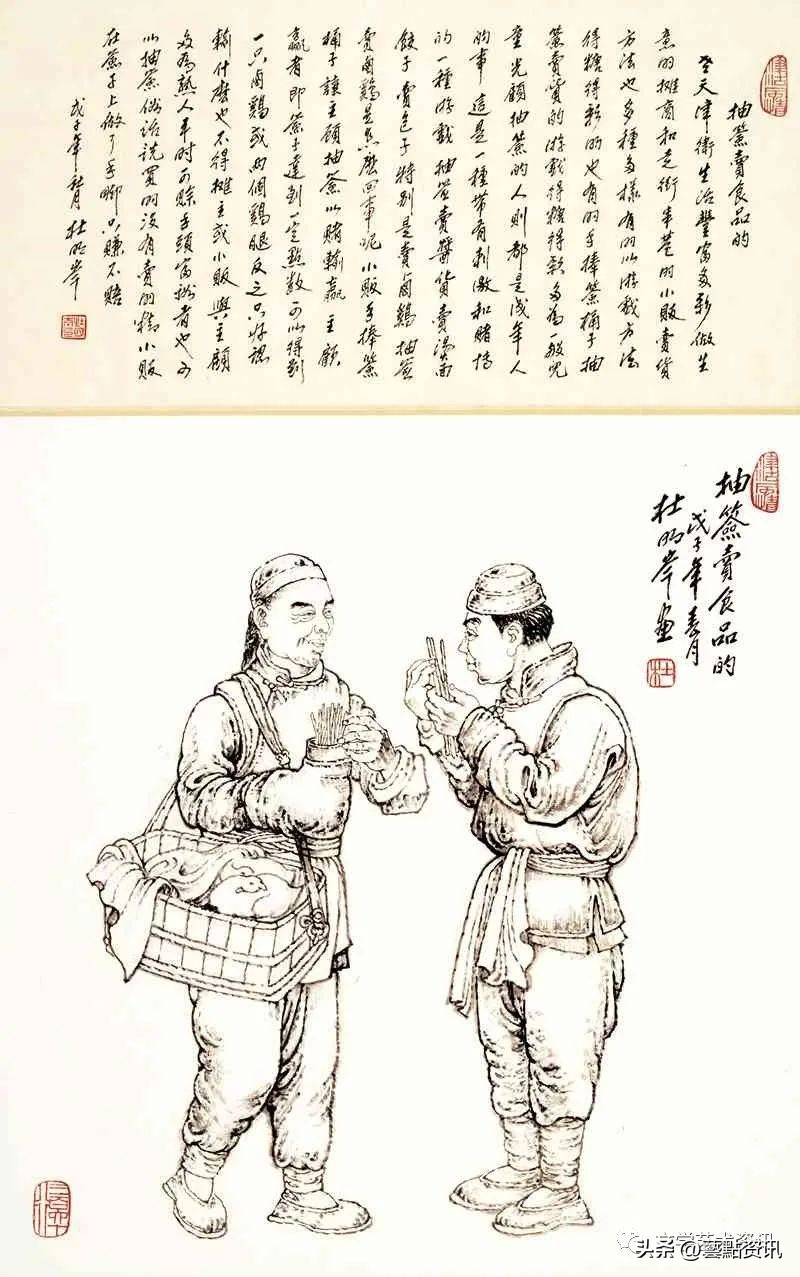 抽簽賣食品的
老天津衛生活豐富多彩做生
意的攤商和走街串巷的小販賣貨
方法也多種多樣有的以游戲方法
得糖得彩的也有的手捧簽桶子抽
簽賣貨的游戲得糖得彩多為一般兒
童光顧抽簽的人則都是成年人
的事這是一種帶有刺激和賭博
的一種游戲抽簽賣醬貨賣湯面
餃子賣包子特別是賣鹵鷄抽簽
賣鹵鷄是怎麽回事呢小販手捧簽
桶子讓主顧抽簽以賭輸贏主顧
贏者即簽子達到一定點數可以得到
一只鹵鷄或兩個鷄腿反之只好認
輸什麽也不得攤主或小販與主顧
多為熟人平時可賒手頭富裕者也可
以抽簽俗話說買的没有賣的精小販
在簽子上做了手脚只賺不賠
戊子年 月 杜明岑
抽簽賣食品的
戊子年春月
杜明岑畫
杜
文学艺术资讯
头条@藝點资讯